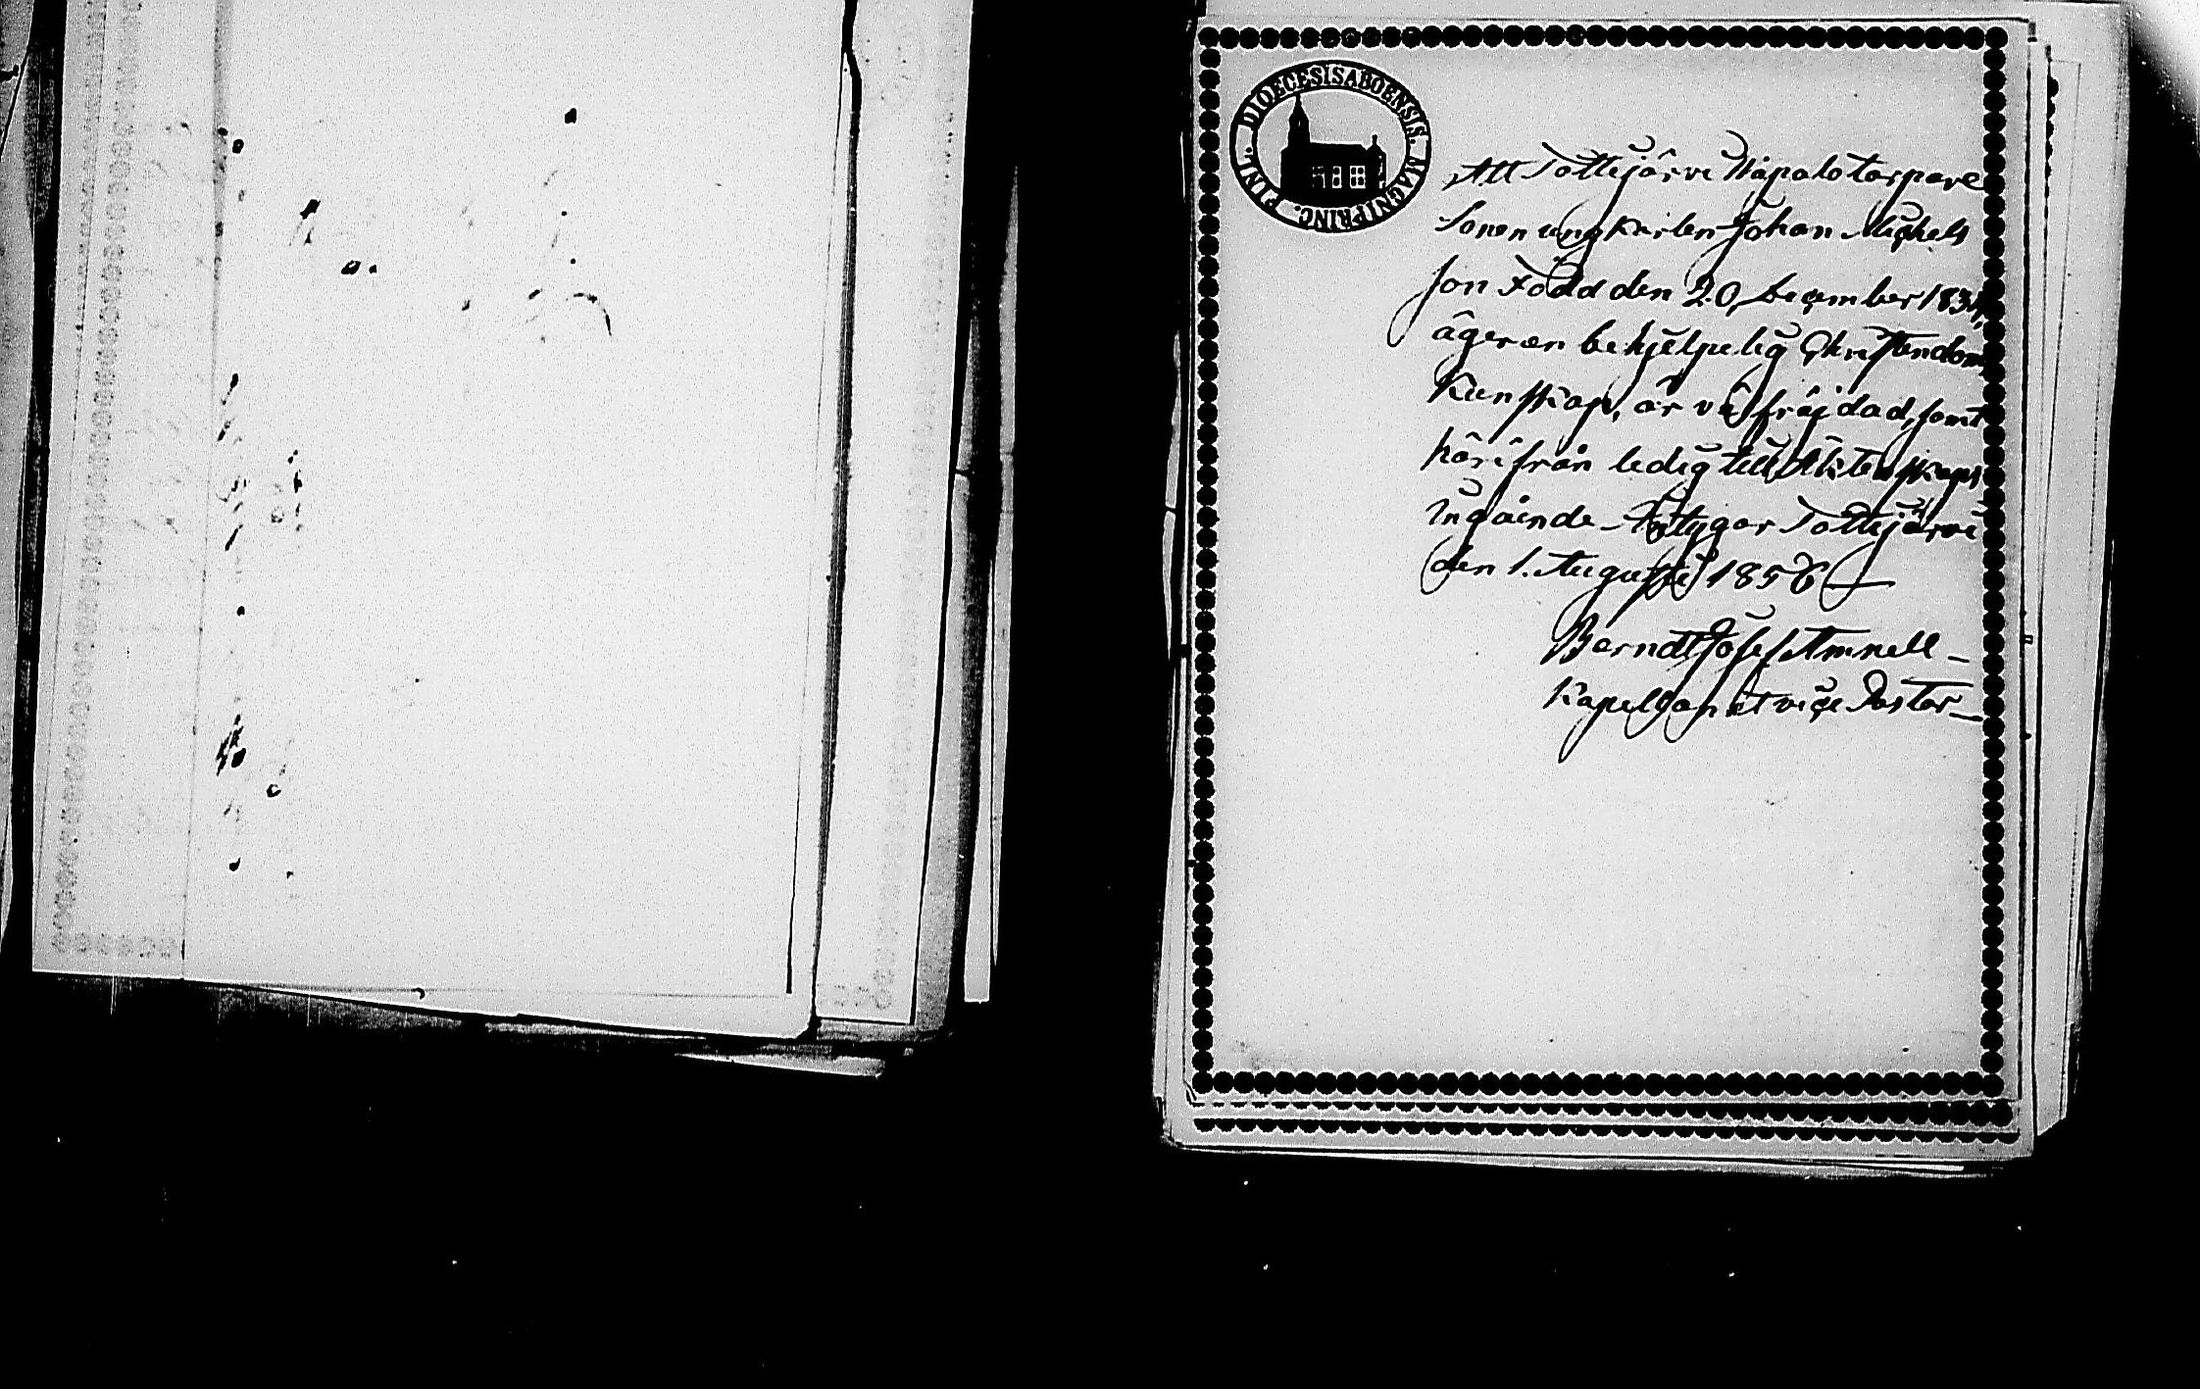 DIOECESIS ABOENSIS. MAGNI PRINC. FINL.
Att Tottijärvi Wapalo torpare
Sonen ungkarlen Johan Michels
son Född den 20 December 183
äger en behjelpelig Christendoms
Kunskap, är väl fräjdad, samt
härifrån ledig till Äktenskaps
Ingående Intygar Tottijärvi
den 1. Augusti 1856
Berndt Josef Amnell
Kapellan et vice Pastor